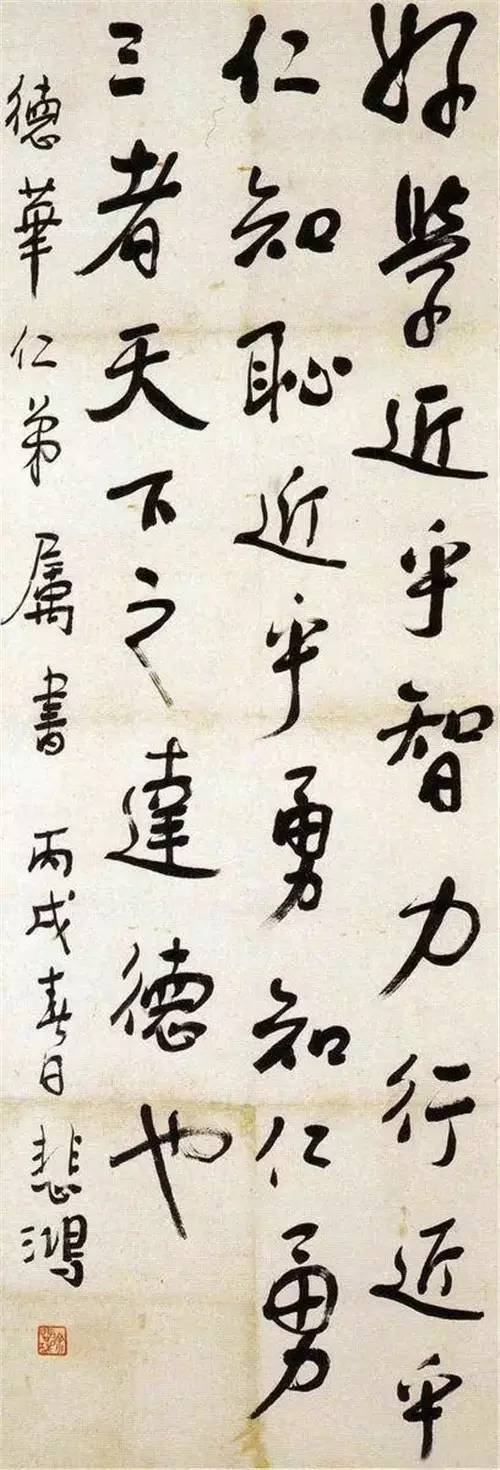 好學近乎智力行近乎
仁知恥近乎勇知仁勇
三者天下之達德也
德華仁弟屬書 丙戌春日 悲鴻